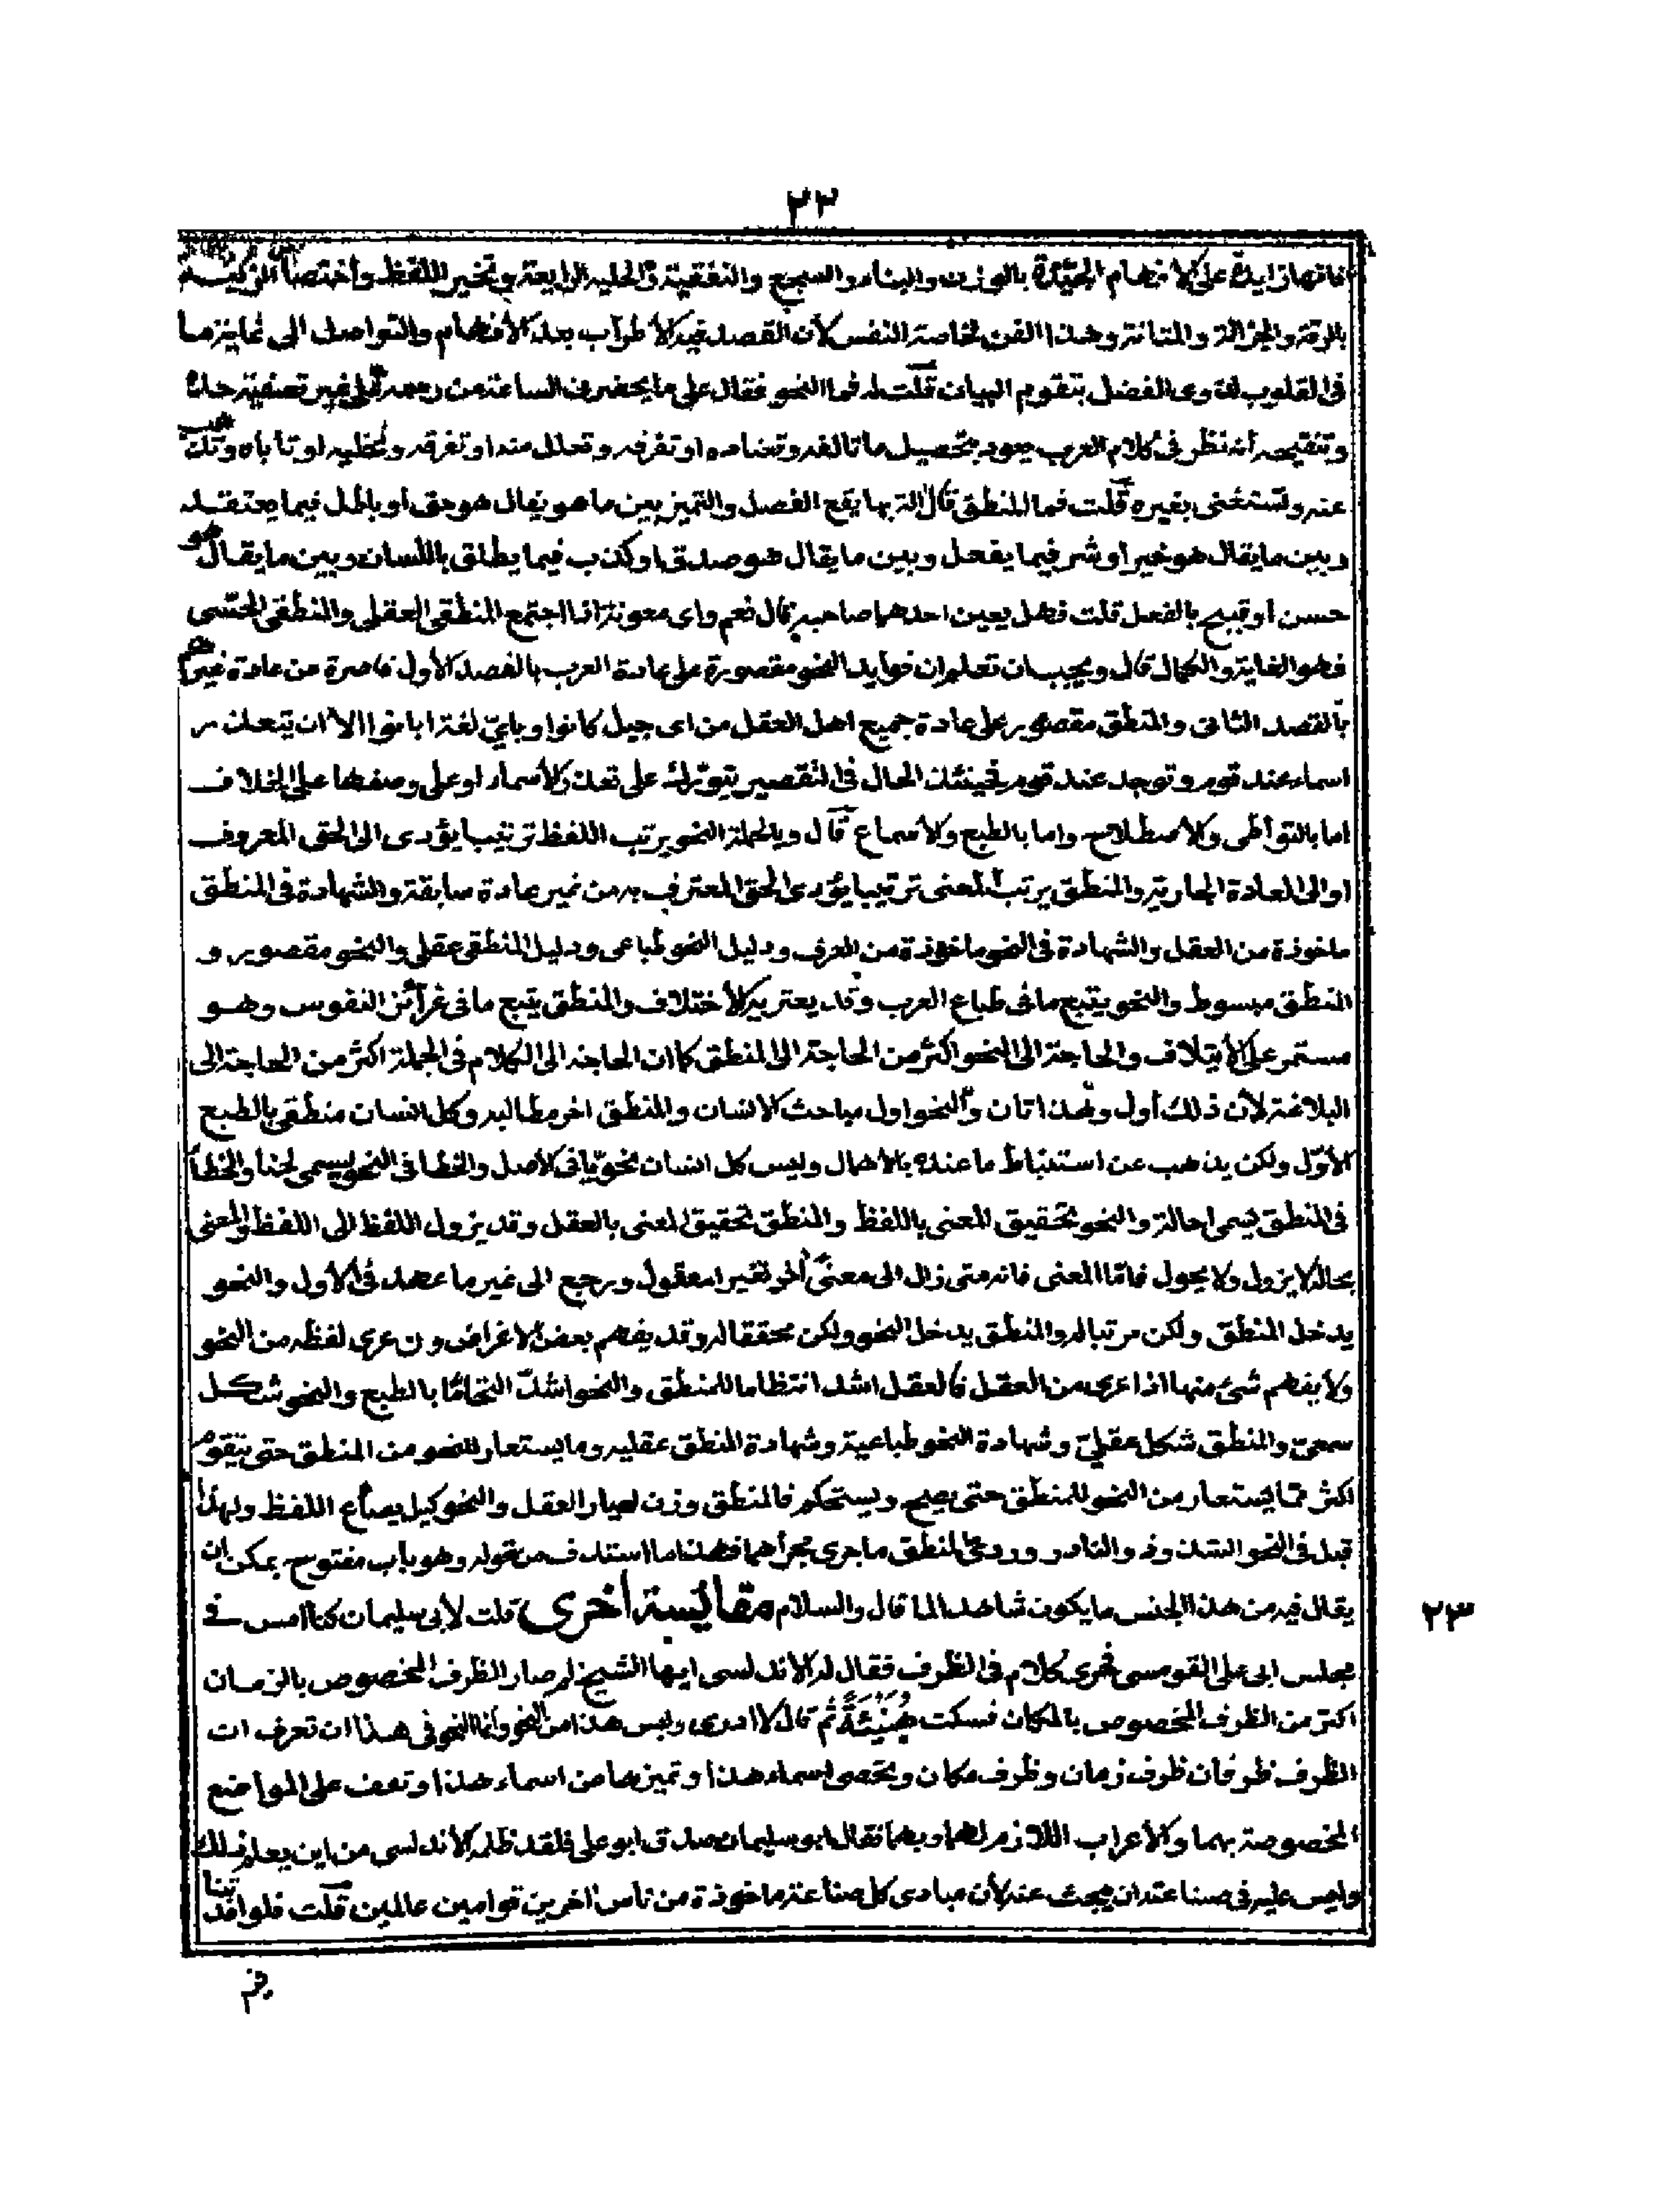 ٢٣
فانها زايدة على الافهام الجيدة بالوزن والبناء والسجع والتقفية والحلية الرايعة وتخير اللفظ واختصار الزينة
بالرقة والجزالة والمتانة وهذا الفن لخاصة النفس لأن القصد فيه الأطراب بعد الأفهام والتواصل الى غاية ما
فى القلوب لذوى الفضل بتقويم البيان قلت له فما النحو فقال على ما يحضرنى الساعة من رسمه على غير تصفية حده
وتنقيحه أنه نظر فى كلام العرب يعود بتحصيل ما تالفه وتعتاده او تفرقه وتعلل منه او تفرقه وتخليه او تاباه وتذهب
عنه وتستغنى بغيره قلت فما المنطق قال آلة بها يقع الفصل والتميز بين ما هو يقال هو حق او باطل فيما يعتقد
وبين ما يقال هو خير او شر فيما يفعل وبين ما يقال هو صدق او كذب فيما يطلق باللسان وبين ما يقال هو
حسن أو قبيح بالفعل قلت فهل يعين احدهما صاحبه قال نعم واى معونة اذا اجتمع المنطقى العقلى والمنطقى الحسى
فهو الغاية والكمال قال ويجب ان تعلم ان فوايد النحو مقصورة على عادة العرب بالقصد الأول قاصرة عن عادة غيرهم
بالقصد الثانى والمنطق مقصور على عادة جميع اهل العقل من اى جيل كانوا وباى لغة ابانوا الا ان يتعذر
اسماء عند قوم وتوجد عند قوم فحينئذ الحال فى التقصير يتورك على تعذر الأسماء او على وصفها على الخلاف
اما بالتواطى والأصطلاح واما بالطبع والأسماع قال وبالجملة النحو يرتب اللفظ ترتيبا يؤدى الى الحق المعروف
او الى العادة الجارية والمنطق يرتب المعنى ترتيبا يؤدى الحق المعترف به من غير عادة سابقة والشهادة فى المنطق
ماخوذة من العقل والشهادة فى النحو ماخوذة من العرف ودليل النحو طباعى ودليل المنطقى عقلى والنحو مقصور و
المنطق مبسوط والنحو يتبع ما فى طباع العرب وقد يعتريه الأختلاف والمنطق يتبع ما فى غرآئز النفوس وهو
مستمر على الأيتلاف والحاجة الى النحو اكثر من الحاجة الى المنطق كما ان الحاجة الى الكلام فى الجملة اكثر من الحاجة الى
البلاغة لأن ذلك أول وهذا ثان والنحو اول مباحث الانسان والمنطق اخر مطالبه وكل انسان منطقى بالطبع
الأوّل ولكن يذهب عن استنباط ما عنده بالاهمال وليس كل انسان نحويّا فى الأصل والخطا فى النحو يسمى لحنا والخطأ
فى المنطق يسمى احالة والنحو تحقيق المعنى باللفظ والمنطق تحقيق المعنى بالعقل وقد يزول اللفظ الى اللفظ والمعنى
بحاله لا يزول ولا يحول فامّا المعنى فانه متى زال الى معنىً آخر تغير المعقول ورجع الى غير ما عهد فى الأول والنحو
يدخل المنطق ولكن مرتبا له والمنطق يدخل النحو ولكن محققا له وقد يفهم بعض الأغراض وان عرى لفظه من النحو
ولا يفهم شئ منها اذا عرى من العقل فالعقل اشد انتظاما للمنطق والنحو اشدّ التحامًا بالطبع والنحو شكل
سمعى والمنطق شكل عقلىّ وشهادة النحو طباعية وشهادة المنطق عقلية وما يستعار للنحو من المنطق حتى يتقوم
اكثر ممّا يستعار من النحو للمنطق حتى يصح ويستحكم فالمنطق وزن لعيار العقل والنحو كيل بصاع اللفظ ولهذا
قيل فى النحو الشذوذ والنادر وردئ المنطق ما جرى مجراهما فهذا ما استدف من قوله وهو باب مفتوح يمكن ان
يقال فيه من هذا الجنس ما يكون شاهدا لما قال والسلام مقايسة أخرى قلت لأبى سليمان كنا أمس فى
٢٣
مجلس ابى على القومسى فجرى كلام فى الظرف فقال له الاندلسى ايها الشيخ لم صار الظرف المخصوص بالزمان
اكثر من الظرف المخصوص بالمكان فسكت هُنَيْئَةً ثم قال لا ادرى وليس هذا من النحو وانما النحو فى هذا ان تعرف ان
الظرف ظرفان ظرف زمان وظرف مكان وتحصى اسماء هذا وتميزها من اسماء هذا وتقف على المواضع
المخصوصة بهما والأعراب اللازم لهما وبهما فقال ابو سليمان صدق ابو على فلقد ظلمه الأندلسى من اين يعلم ذلك
وليس عليه فى صناعته ان يبحث عنه لأن مبادى كل صناعة ماخوذة من ناس آخرين قوامين عالمين قلت فلو افدتنا